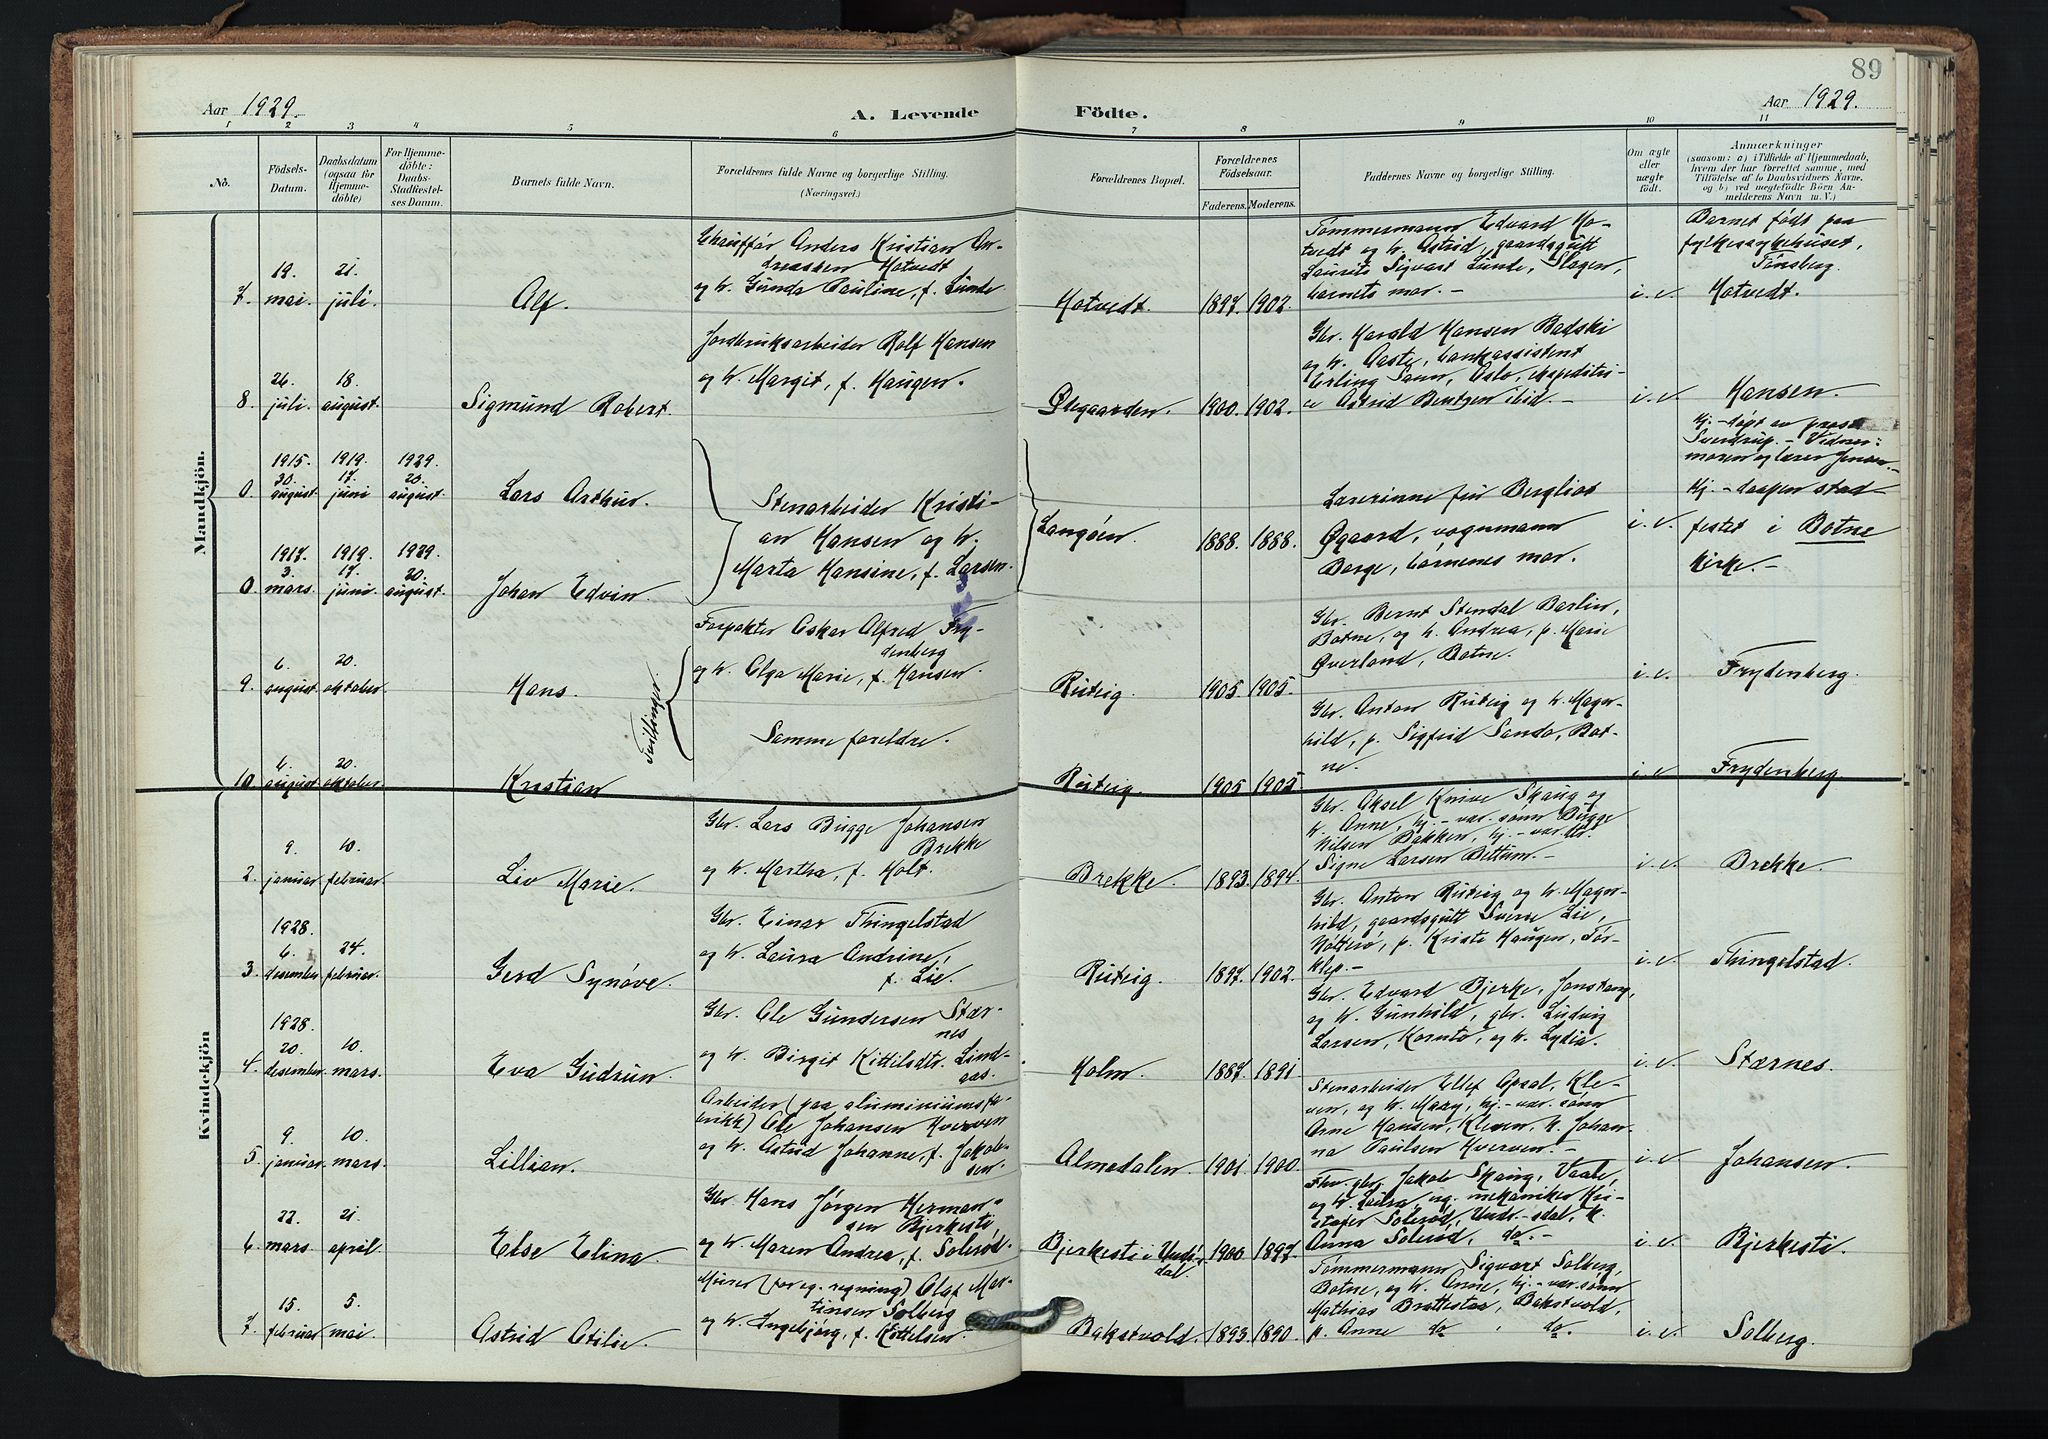 89
Aar 1929.
A. Levende Födte.
Aar 1929.
1 2 3 4 5 6 7 8 9 10 11
No.
Födsels-
Datum.
Daabsdatum
(ogsaa for
Hjemme-
döbte)
For Hjemme-
döbte:
Daabs-
Stadfæstel-
ses Datum.
Barnets fulde Navn.
Forældrenes fulde Navne og borgerlige Stilling.
(Næringsvei.)
Forældrenes Bopæl.
Forældrenes
Födselsaar.
Faderens. Moderens.
Faddernes Navne og borgerlige Stilling.
Om ægte
eller
uægte
födt.
Anmærkninger
(saasom: a) i Tilfælde af Hjemmedaab,
hvem der har forrettet samme, med
Tilföielse af to Daabsvidners Navne.
og b) ved uegtefödte Börn An-
melderens Navn m. V.)
Mandkjön.
7.
19.
mai.
21.
juli.
Alf.
Chauffør Anders Kristian An-
dreassen Hotvedt
og h. Gunda Pauline, f. Lunde
Hotvedt.
1897. 1902.
Tømmermann Edvard Ho-
tvedt og h. Astrid, gaardsgutt
Laurits Sigvart Lunde, Slagen,
barnets mor. –
i. e.
Barnet født paa
fylkessykehuset,
Tønsberg.
Hotvedt.
8.
26.
juli.
18.
august.
Sigmund Robert.
Jordbruksarbeider Rolf Hansen
og h. Margit, f. Haugen.
Ølegaarden.
1900. 1902.
Gbr. Harald Hansen Badski
og h. Aaste, bankassistent
Erling Sann, Oslo, ekspeditri-
ce Astrid Bentzen ibid. –
i. e.
Hansen.
0.
1915.
30.
august.
1919.
17.
juni
1929.
20.
august.
Lars Arthur.
Stenarbeider Kristi-
an Hansen og h.
Marta Hansine, f. Larsen.
Langøen.
1888. 1888.
Lærerinne frk. Bergliot
Øgaard, vognmann
Borge, barnenes mor.
i. e.
Hj. – døpt av prest
Sverdrup. – Vidner:
moren og lærer Jensen. –
Hj. – daapen stad-
festet i Botne
kirke. –
0.
1917.
3.
mars.
1919.
17.
juni.
1929.
20.
august.
Johan Edvin.
9.
6.
august.
20.
oktober.
Hans.
Tvillinger.
Forpakter Oskar Alfred Fry-
denberg
og h. Olga Marie, f. Hansen.
Rutvig.
1905. 1905.
Gbr. Bernt Stendal Barlin,
Botne, og h. Andrea, p. Marie
Øverland, Botne.
i. e.
Frydenberg.
10.
6.
august.
20.
oktober.
Kristian
Samme foreldre.
Rutvig.
1905. 1905.
Gbr. Anton Rutvig og h. Magn-
hild, p. Sigfrid Sando, Bot-
ne.
i. e.
Frydenberg
Kvindekjön
2.
9.
januar.
10.
februar.
Liv Marie.
Gbr. Lars Bugge Johansen
Brekke
og h. Martha, f. Holt.
Brekke.
1893. 1894.
Gbr. Aksel Knive Skaug og
h. Anne, hj. – vær. sønn Bugge
Nilsen Bakken, hj. – vær. dtr.
Signe Larsen Bettum. –
i. e.
Brekke.
3.
1928.
6.
desember.
24.
februar.
Gerd Synøve.
Gbr. Einar Thingelstad
og h. Laura Andrine,
f. Lie.
Rutvig.
1897. 1902.
Gbr. Anton Rutvig og h. Magn-
hild, gaardsgutt Sverre Lie,
Nøtterø, p. Kriste Haugen, For-
klep. –
i. e.
Thingelstad.
4.
1928.
20.
desember.
10.
mars.
Eva Gudrun.
Gbr. Ole Gundersen Stær-
nes
og h. Birgit Kittilsdtr. Lind-
aas.
Holm.
1887. 1891.
Gbr. Edvard Bjerke, Jonskog,
og h. Gunhild, gbr. Ludvig
Larsen, Kornto, og h. Lydia.
i. e.
Stærnes.
5.
9.
januar.
10.
mars.
Lillian.
Arbeider (paa aluminiumsfa-
brikk) Ole Johansen Kverven
og h. Astrid Johanne, f. Jakob-
sen.
Almedalen
1901. 1900.
Stenarbeider Ellef Opsal, Kle-
ven, og h. Mary, hj. – vær. sønn
Arne Hansen, Kleven, h. Johan-
na Paulsen Kverven. –
i. e.
Johansen.
6.
22.
mars.
21.
april.
Else Elina.
Gbr. Hans Jørgen Herman-
sen Bjerkesti,
og h. Maren Andrea, f. Solerød.
Bjerkesti i Undr.
dal.
1900. 1897.
Fhv. gbr. Jakob Skaug, Vaale,
og h. Laura, ug. mekaniker Kri-
stofer Solerød, Undr. – dal, h.
Anna Solerød, do. –
i. e.
Bjerkesti.
7.
15.
februar.
5.
mai.
Astrid Otilie.
Murer (for eg. regning) Olaf Mar-
tinsen Solberg
og h. Ingebjørg, f. Kittelsen.
Bakstvold.
1893. 1890.
Tømmermann Sigvart Solberg,
Botne, og h. Anne, hj. – vær. sønn
Mathias Brattestaa, Bakstvold,
p. Anne do , do.
i. e.
Solberg.